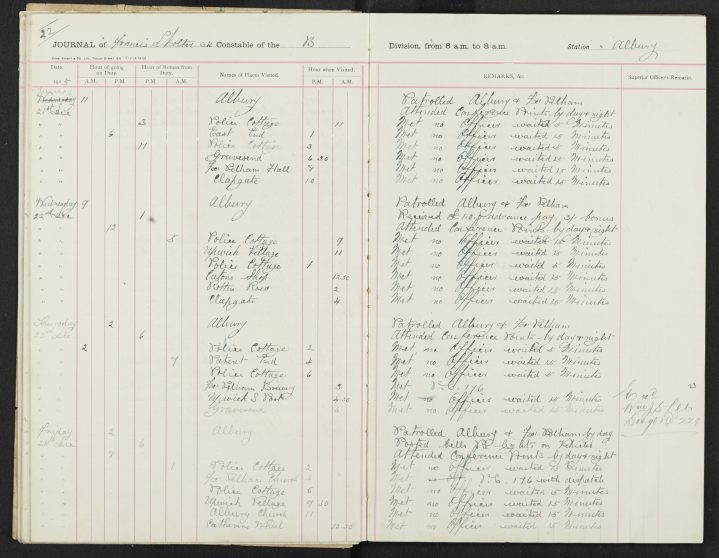 22
JOURNAL of Francis Constable of the B Division, from 8 a.m. to 8 a.m. Station Albury
Date. Hour of going on Duty. Hour of Return from Duty. Names of Places Visited. Hour when Visited. REMARKS, &c. Superior Officer's Remarks.
A.M. P.M. A.M. P.M. P.M. A.M.
11 Albury Patrolled Albury & Fx Pelham
21st Dec Attended Conference Points by day & night
3 Police Cottage 11 Met no Officer waited 5 Minutes
6 East End 1 Met no Officer waited 15 Minutes
11 Police Cottage 3 Met no Officer waited 5 Minutes
Gravesend 6 30 Met no Officer waited 15 Minutes
Fx Pelham Hall 8 Met no Officer waited 15 Minutes
Clapgate 10 Met no Officer waited 15 Minutes
Wednesday 9 Albury Patrolled Albury & Fx Pelham
22nd Dec 1 Received advance pay, 3/- bonus
12 Attended Conference Points by day & night
5 Police Cottage 9 Met no Officer waited 15 Minutes
Upwick Village 11 Met no Officer waited 15 Minutes
Police Cottage 1 Met no Officer waited 5 Minutes
Shop 12.30 Met no Officer waited 15 Minutes
Rotten Row 2 Met no Officer waited 15 Minutes
Clapgate 4 Met no Officer waited 15 Minutes
Thursday 2 Albury Patrolled Albury & Fx Pelham
Dec 6 Attended Conference Points by day & night
2 Police Cottage 2 Met no Officer waited 5 Minutes
7 Patient End 4 Met no Officer waited 15 Minutes
Police Cottage 6 Met no Officer waited 5 Minutes
Fx Pelham Brewery 3 Met P.C. 176
Upwick 4 30 Met no Officer waited 15 Minutes
Gravesend 6 Met no Officer waited 15 Minutes
23
Friday 2 Albury Patrolled Albury & Fx Pelham by day
24th Dec 6 Posted bills lights on Vehicles
8 Attended Conference Points by day & night
1 Police Cottage 2 Met no Officer waited 5 Minutes
Fx Pelham Church 4 Met P.C. 176 with despatch
Police Cottage 6 Met no Officer waited 5 Minutes
Upwick Village 9 30 Met no Officer waited 15 Minutes
Albury Church 11 Met no Officer waited 15 Minutes
Catherine Wheel 12.30 Met no Officer waited 15 Minutes